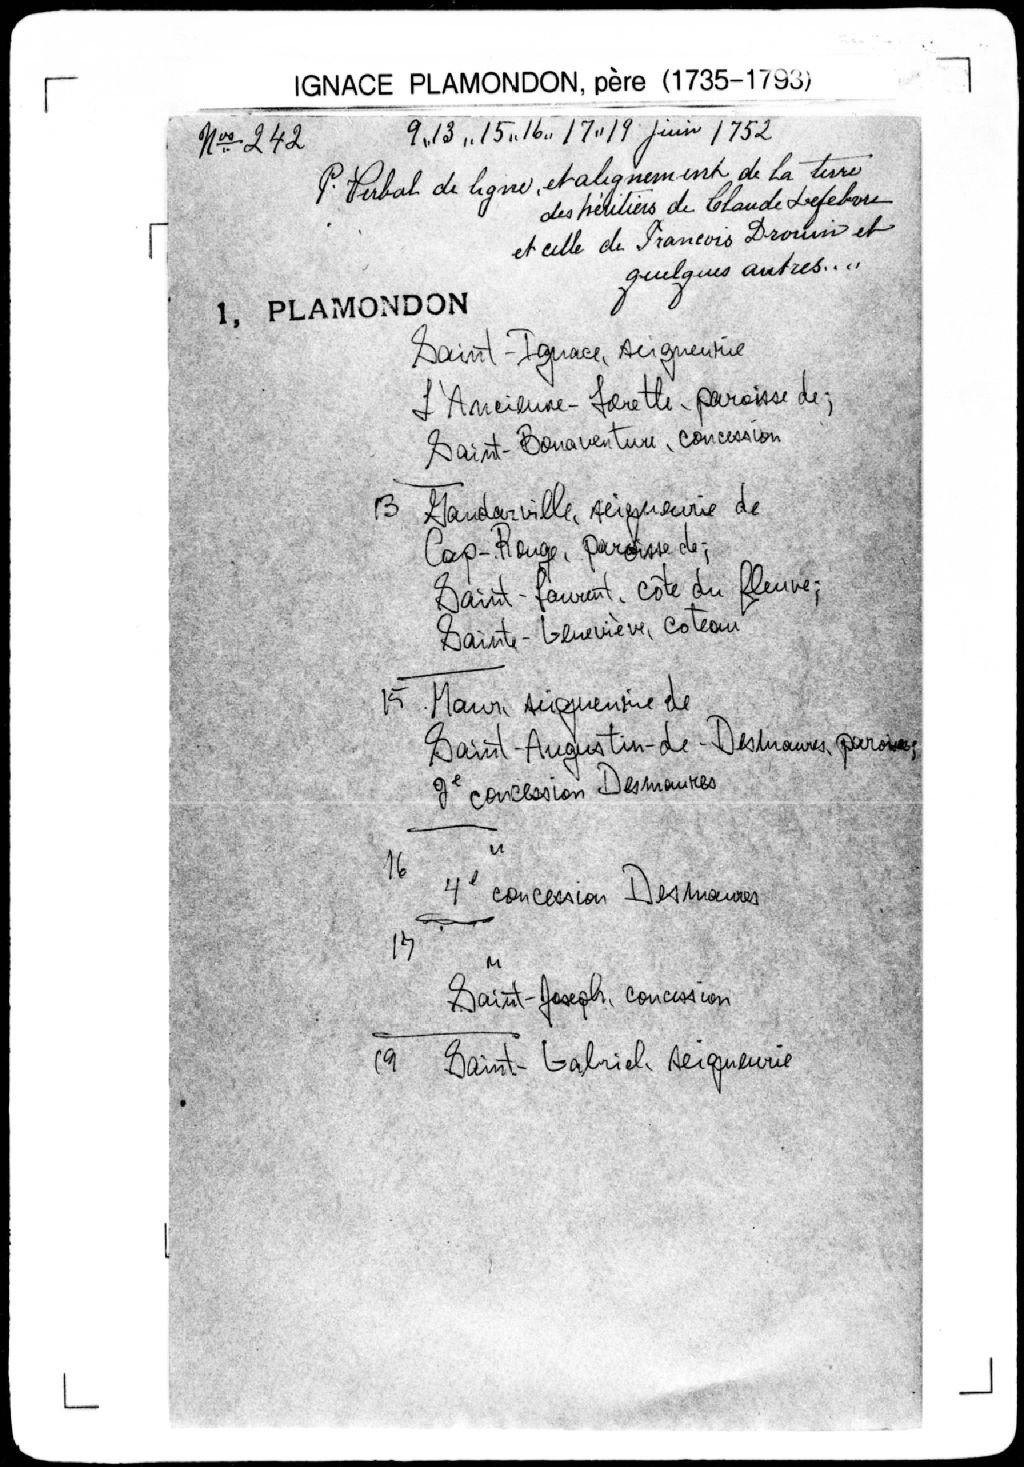 IGNACE PLAMONDON, père (1735-1793)
Nos 242
9,,13,,15,,16,,17,,19 juin 1752
P. Verbal de ligne, et alignement de la terre
des héritiers de Claude Lefebvre
et celle de Francois Drouin et
quelques autres....
1, PLAMONDON
Saint-Ignace, seigneurie
L'Ancienne-Lorette, paroisse de;
Saint-Bonaventure, concession
13 Gaudarville, seigneurie de
Cap-Rouge, paroisse de;
Saint-Laurent, côte du fleuve;
Sainte-Geneviève, coteau
15 Maur, seigneurie de
Saint-Augustin-de-Desmaures, paroisse;
2e concession Desmaures
16 "
4e concession Desmaures
17 "
Saint-Joseph, concession
19 Saint-Gabriel, seigneurie